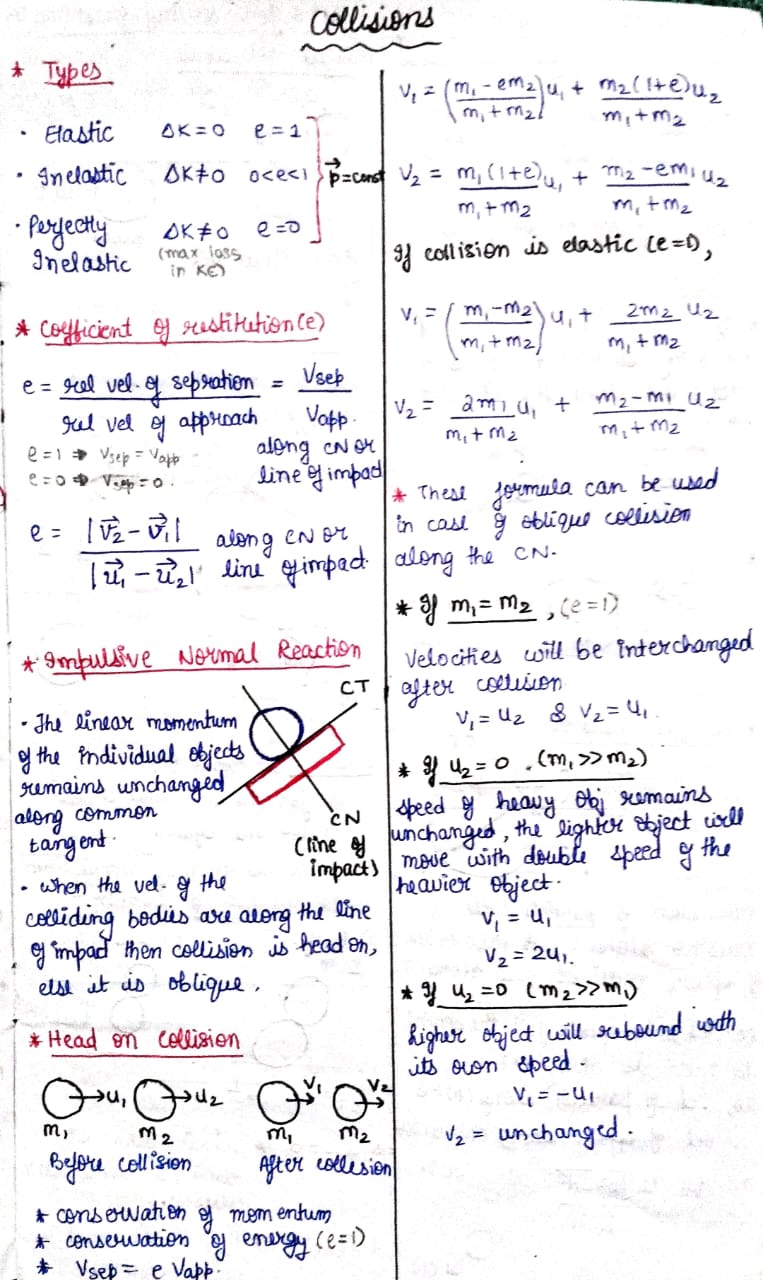 Collisions
* Types
• Elastic ΔK = 0 e = 1
• Inelastic ΔK≠0 0<e<1
• Perfectly ΔK≠0 e=0
Inelastic (max loss
in KE)
p⃗ = const
* Coefficient of restitution(e)
e = rel vel. of sepration = Vsep
rel vel of approach Vapp.
e=1 ⇒ Vsep = Vapp
e=0 ⇒ Vsep = 0.
along CN or
line of impact
e = |v⃗₂ - v⃗₁| along CN or
|u⃗₁ - u⃗₂| line of impact
* Impulsive Normal Reaction
CT
• The linear momentum
of the individual objects
remains unchanged
along common
tangent.
CN
(line of
impact)
• when the vel. of the
colliding bodies are along the line
of impact then collision is head on,
else it is oblique.
* Head on Collision
→u₁ →u₂ V₁ V₂
m₁ m₂ m₁ m₂
Before collision After collesion
* conservation of momentum
* conservation of energy (e=1)
* Vsep = e Vapp.
V₁ = (m₁ - em₂)u₁ + m₂(1+e)u₂
m₁ + m₂ m₁ + m₂
V₂ = m₁(1+e)u₁ + m₂-em₁ u₂
m₁ + m₂ m₁ + m₂
If collision is elastic (e=1),
V₁ = (m₁-m₂)u₁ + 2m₂ u₂
m₁ + m₂ m₁ + m₂
V₂ = 2m₁ u₁ + m₂-m₁ u₂
m₁ + m₂ m₁ + m₂
* These formula can be used
in case of oblique collision
along the CN.
* If m₁ = m₂, (e=1)
Velocities will be interchanged
after collision
V₁ = u₂ & V₂ = u₁.
* If u₂ = 0 . (m₁>>m₂)
speed of heavy obj remains
unchanged, the lighter object will
move with double speed of the
heavier object.
V₁ = u₁
V₂ = 2u₁.
* If u₂ =0 (m₂>>m₁)
higher object will rebound with
its own speed.
V₁ = -u₁
V₂ = unchanged.